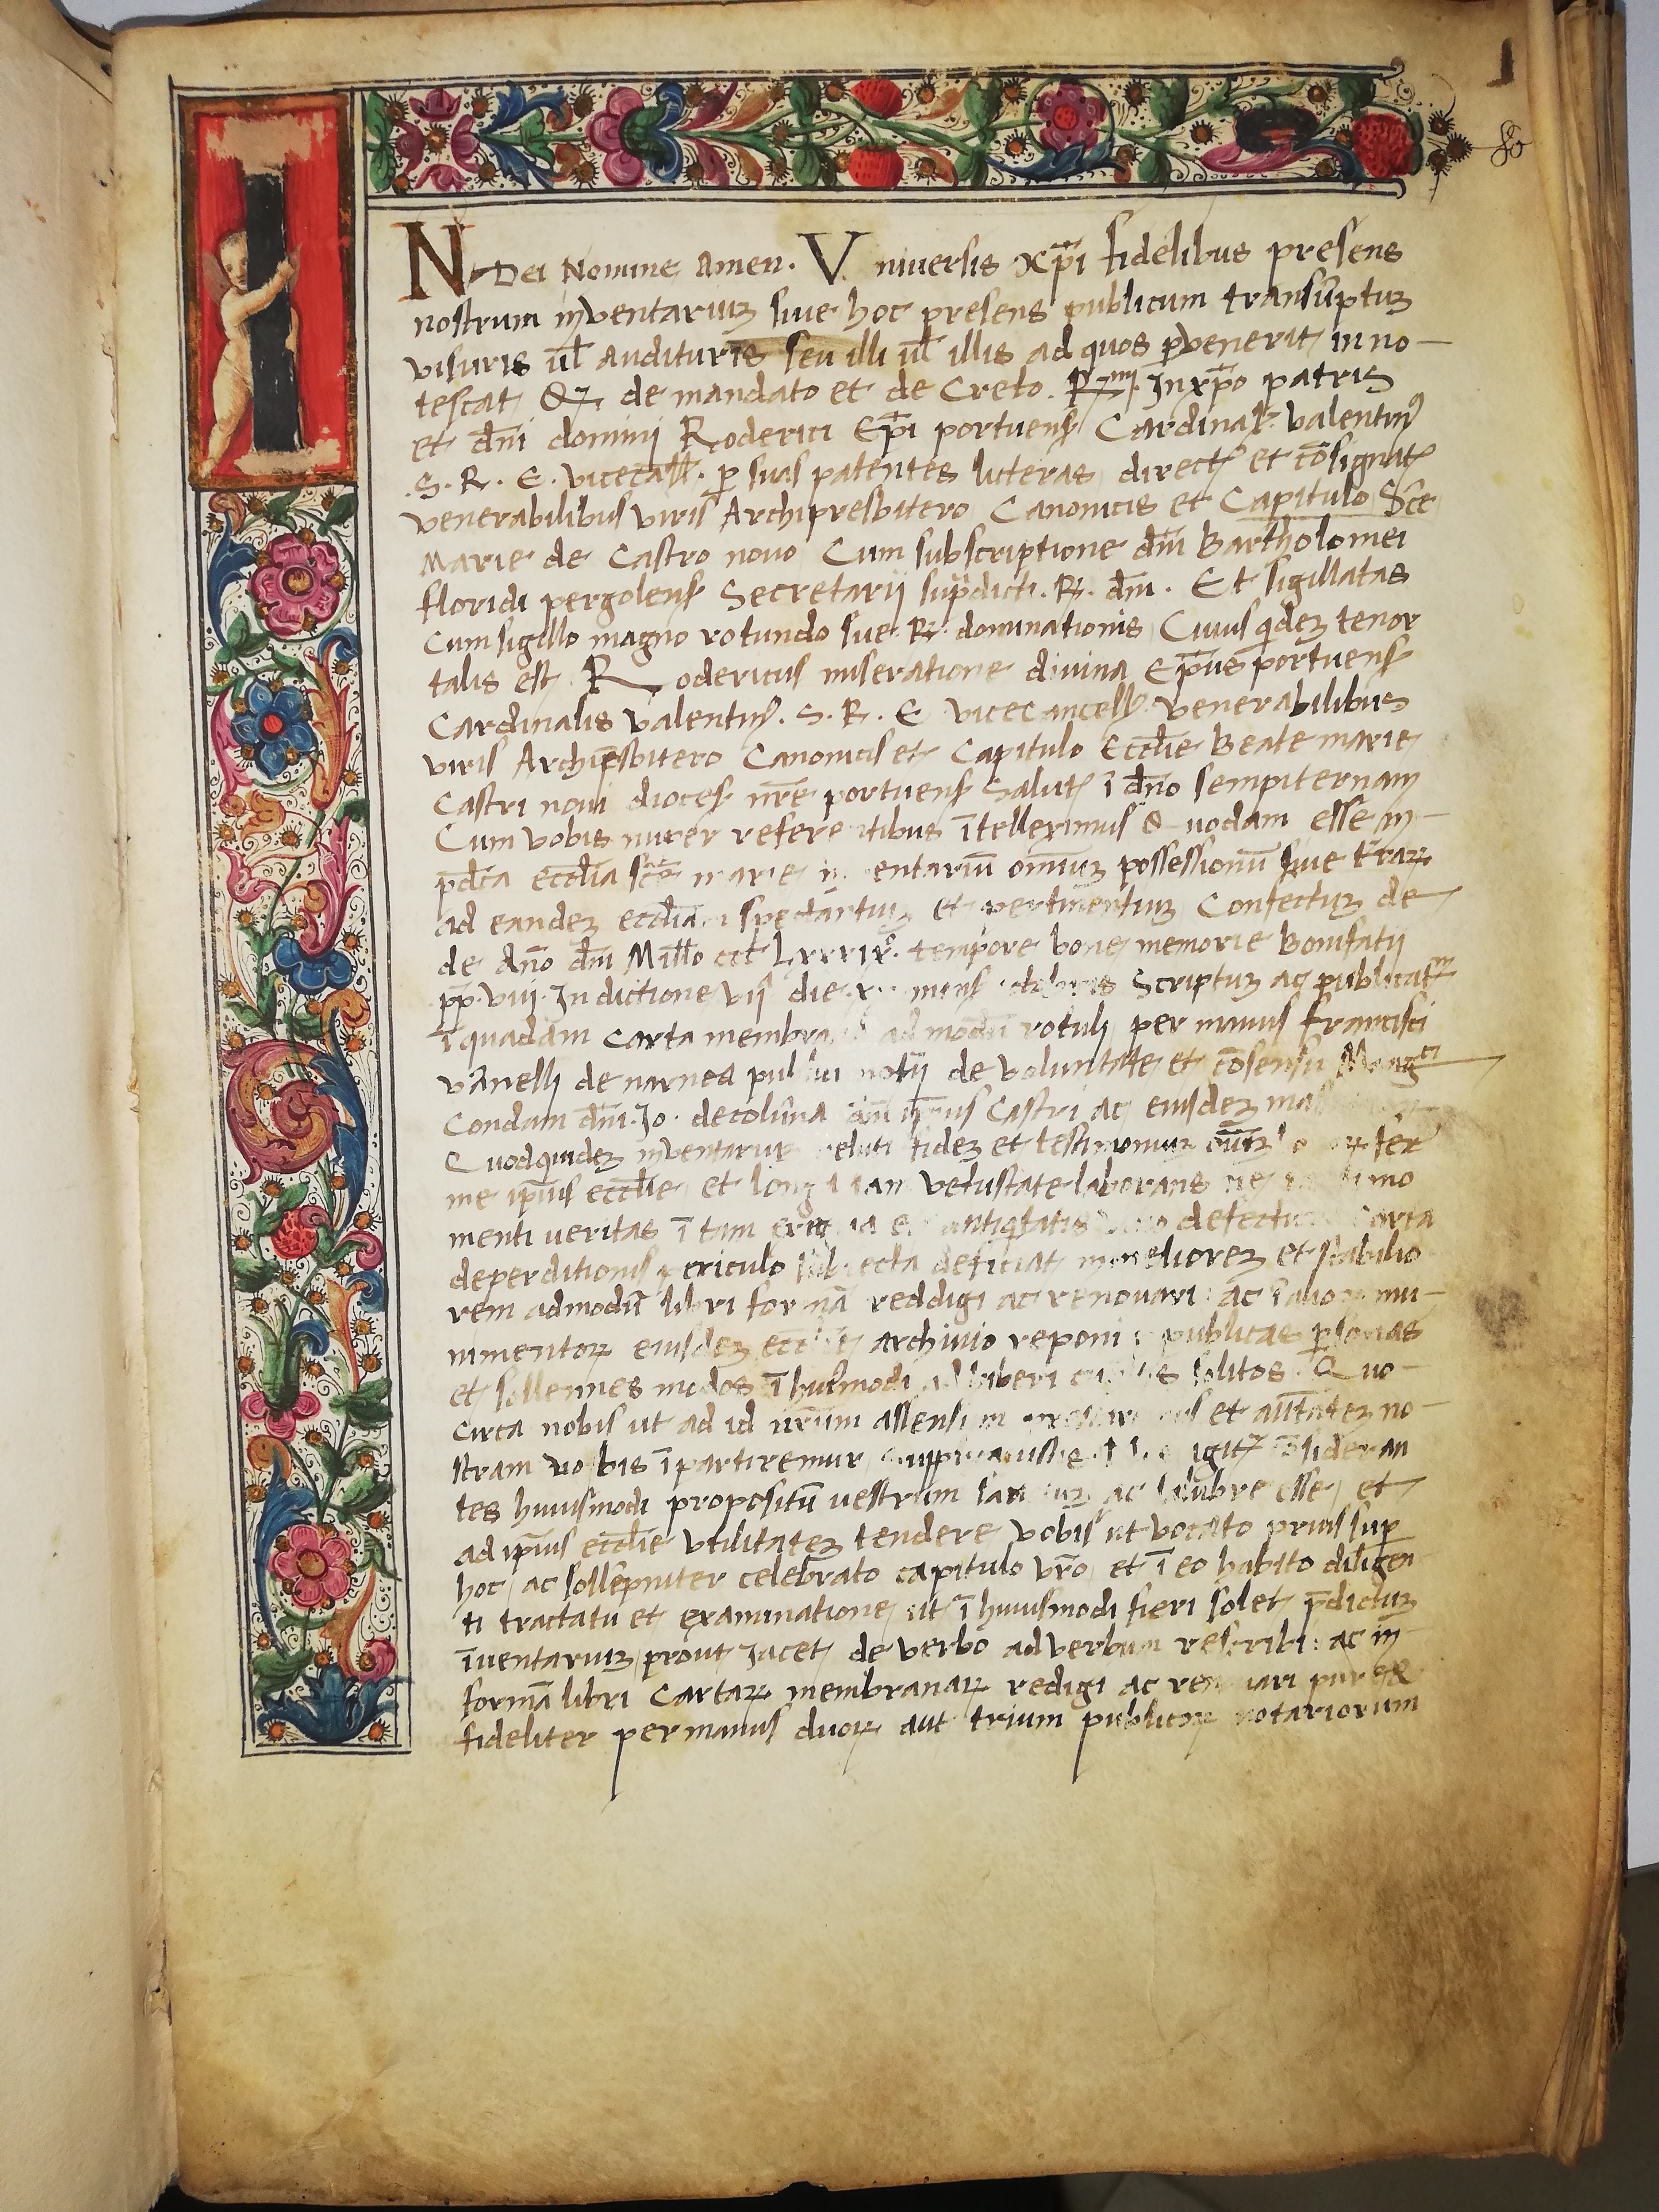 1
IN Dei Nomine Amen. Universis xp̄i fidelibus presens
nostrum inventariuꝫ sive hoc presens publicum transūptuꝫ
visuris ul̄ audituris seu illi ul̄ illis ad quos pervenerit inno-
tescat de mandato et de Creto. R.mi. In xp̄o patris
et dn̄i dominj Roderici Ep̄i portuens Cardinal. valentin
.S. R. E. vicecall. ꝑ suas patentes licteras direct et cōsignat
venerabilibus viris Archipresbitero Canonicis et Capitulo Sc̄e
Marie de Castro novo Cum subscriptione dn̄i Bartholomei
floridi pergolens Secretarij sup̄dicti. R. dn̄i. Et sigillatas
Cum sigillo magno rotundo sue. R. dominationis Cuius qideꝫ tenor
talis est Rodericus miseratione divina Ep̄us portuens
Cardinalis valentin. S. R. E vicecancell venerabilibus
viris Archip̄sbitero Canonicis et Capitulo Eccl̄ie Beate marie
Castri novi dioces nr̄e portuens Salut ī dn̄o sempiternam
Cum vobis nuper refere tibus ītelleximus Quodam esse in-
p̄dc̄a eccl̄ia sc̄e marie entariū omniuꝫ possessionū sive t̄raꝝ
ad eandeꝫ eccl̄ia spectantiuꝫ et pertinentiuꝫ Confectuꝫ de
de An̄o dn̄i Mill̄o ccc̄ Lxxxix. tempore bone memorie Bonifatij
pp̄. viiij. Indictione vij die mens Scriptuꝫ ac publicat
ī quadam Carta membra ad modū rotuli per manus francisci
vānelli de narnea pub notij de voluntate et cōsensu
Condam dn̄i. Jo. de colūna ip̄ius Castri ac eiusdeꝫ
Quodquideꝫ inventariu veluti fideꝫ et testimoniuꝫ fer
me ip̄ius eccl̄ie et long iam vetustate laborans ne imo
menti veritas ī tam antiq̄tatis defectu Carta
deperditionis periculo subiecta deficiat in meliorem et stabilio
rem admodū libri formā reddigi ac renovari: ac ī mu-
nimentoꝝ eiusdeꝫ eccl̄ie archivio reponi publicas ꝑsonas
et sollennes modos ī hui᷒modi solitos. Quo-
circa nobis ut ad id nr̄um assensum et auct̄ateꝫ no-
stram vobis īpartiremur igit cōsideran
tes huiusmodi propositū vestrum ac salubre esse et
ad ip̄ius eccl̄ie utilitateꝫ tendere vobis ut vocato prius suꝑ
hoc ac sollepniter celebrato capitulo vr̄o et ī eo habito diligen
ti tractatu et examinatione ut ī huiusmodi fieri solet p̄dictuꝫ
īventariuꝫ prout Jacet de verbo ad verbum rescribi: ac in
formā libri Cartaꝝ membranaꝝ redigi ac ren vari pure &
fideliter per manus duoꝝ aut trium publicoꝝ notariorum